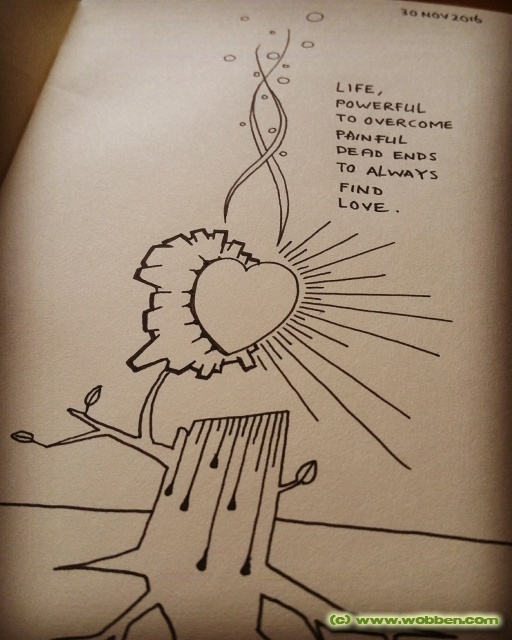 30 NOV 2016
LIFE,
POWERFUL
TO OVERCOME
PAINFUL
DEAD ENDS
TO ALWAYS
FIND
LOVE.
(c) www.wobben.com